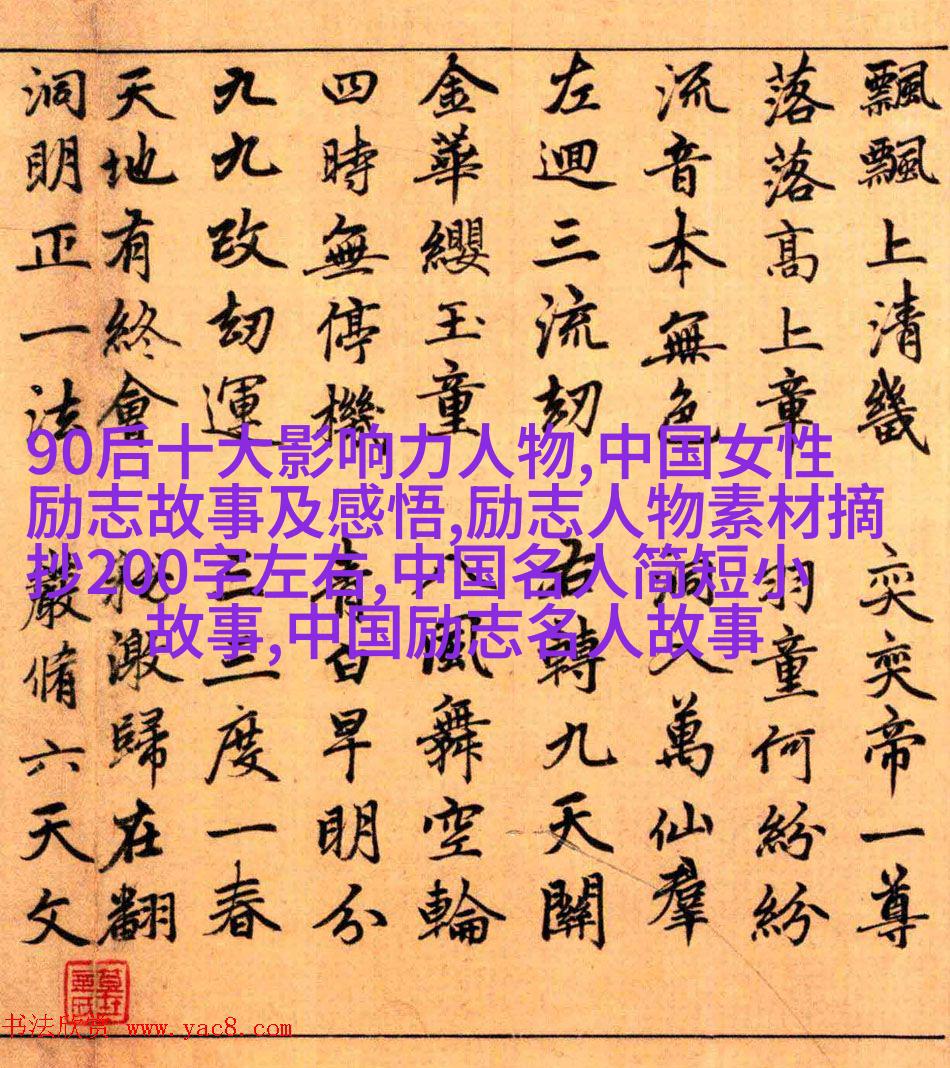 飄飄上清畿 奕奕帝一尊
落落高上章 羽童何紛紛
流音本無色 入萬仙羣
左迴三流刼 右轉九天關
金華纓玉童 八風舞空輪
四時無停機 青白早明分
九九改刼運 三三度一春
天地有終會 激歸在翻
洞明正一法 嚴脩六天文
90后十大影响力人物,中国女性
励志故事及感悟,励志人物素材摘
抄200字左右,中国名人简短小
故事,中国励志名人故事
书法欣赏 www.yac8.com